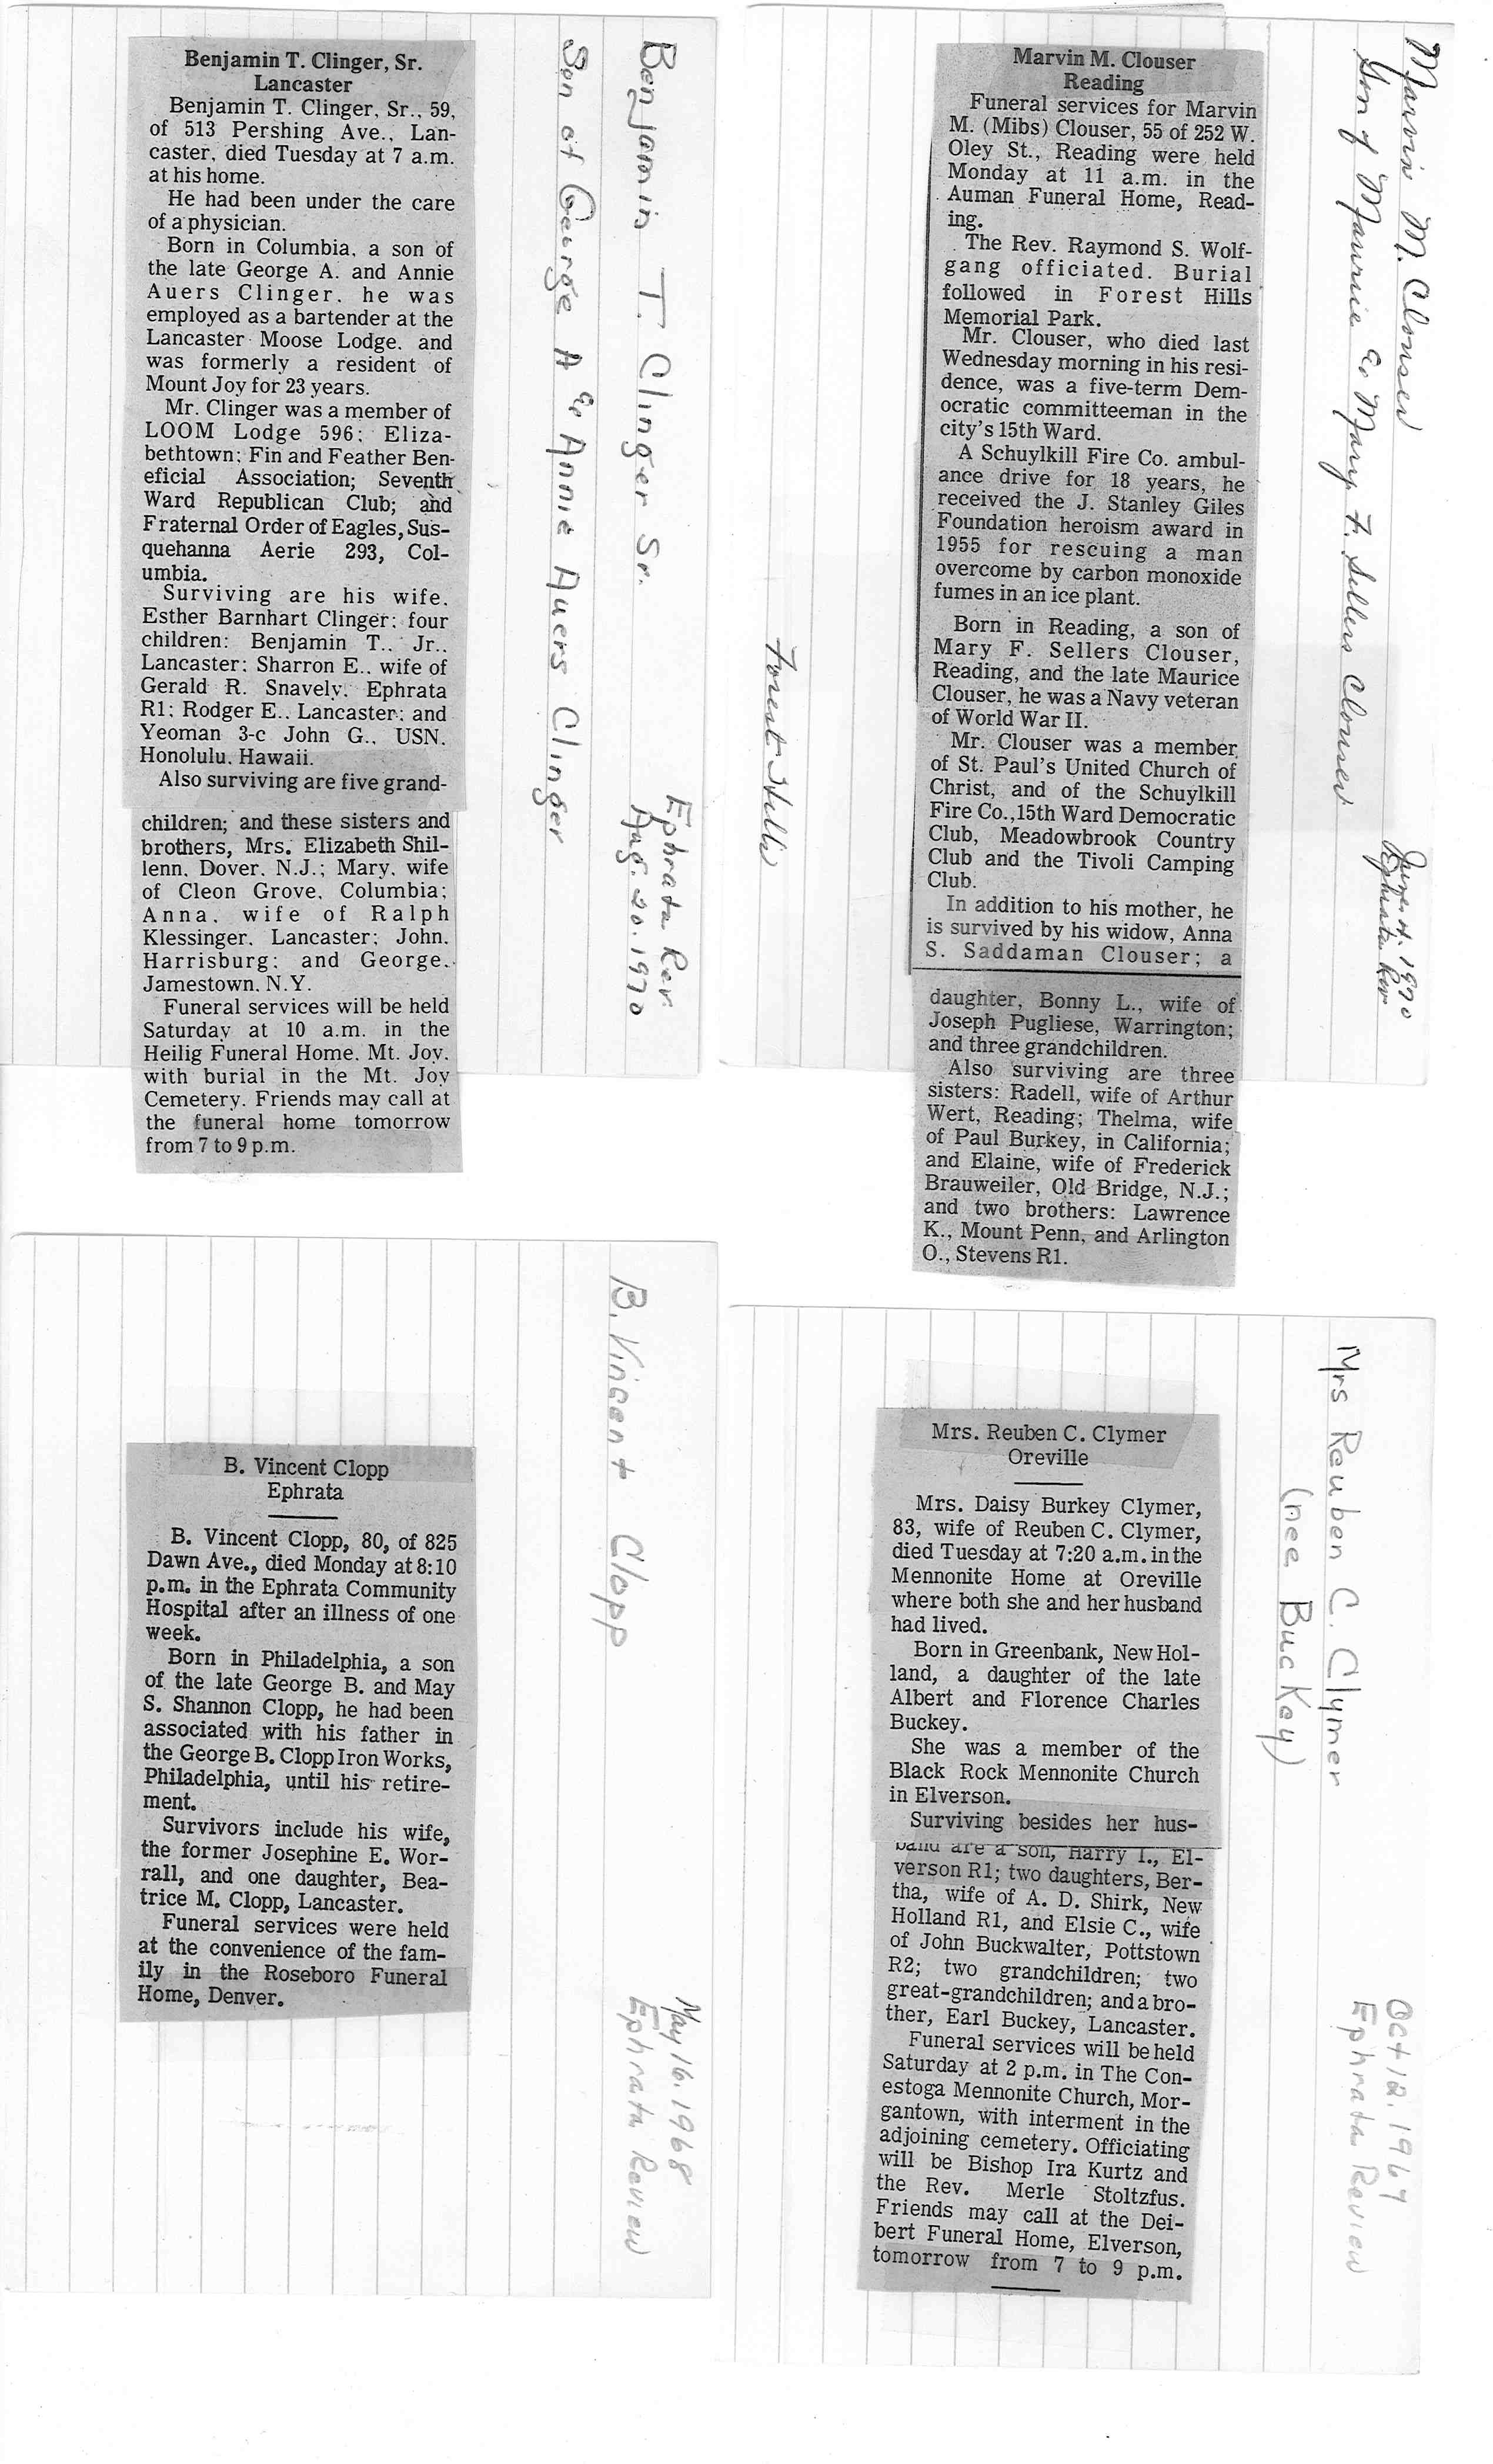 Benjamin T. Clinger, Sr.
Lancaster
Benjamin T. Clinger, Sr., 59,
of 513 Pershing Ave., Lan-
caster, died Tuesday at 7 a.m.
at his home.
He had been under the care
of a physician.
Born in Columbia, a son of
the late George A. and Annie
Auers Clinger, he was
employed as a bartender at the
Lancaster Moose Lodge, and
was formerly a resident of
Mount Joy for 23 years.
Mr. Clinger was a member of
LOOM Lodge 596; Eliza-
bethtown; Fin and Feather Ben-
eficial Association; Seventh
Ward Republican Club; and
Fraternal Order of Eagles, Sus-
quehanna Aerie 293, Col-
umbia.
Surviving are his wife,
Esther Barnhart Clinger; four
children: Benjamin T., Jr.,
Lancaster; Sharron E., wife of
Gerald R. Snavely, Ephrata
R1; Rodger E., Lancaster; and
Yeoman 3-c John G., USN,
Honolulu, Hawaii.
Also surviving are five grand-
children; and these sisters and
brothers, Mrs. Elizabeth Shil-
lenn, Dover, N.J.; Mary, wife
of Cleon Grove, Columbia;
Anna, wife of Ralph
Klessinger, Lancaster; John,
Harrisburg; and George,
Jamestown, N.Y.
Funeral services will be held
Saturday at 10 a.m. in the
Heilig Funeral Home, Mt. Joy,
with burial in the Mt. Joy
Cemetery. Friends may call at
the funeral home tomorrow
from 7 to 9 p.m.
Benjamin T. Clinger Sr.
Son of George A & Annie Auers Clinger
Ephrata Rev.
Aug. 20. 1970
Marvin M. Clouser
Reading
Funeral services for Marvin
M. (Mibs) Clouser, 55 of 252 W.
Oley St., Reading were held
Monday at 11 a.m. in the
Auman Funeral Home, Read-
ing.
The Rev. Raymond S. Wolf-
gang officiated. Burial
followed in Forest Hills
Memorial Park.
Mr. Clouser, who died last
Wednesday morning in his resi-
dence, was a five-term Dem-
ocratic committeeman in the
city's 15th Ward.
A Schuylkill Fire Co. ambul-
ance drive for 18 years, he
received the J. Stanley Giles
Foundation heroism award in
1955 for rescuing a man
overcome by carbon monoxide
fumes in an ice plant.
Born in Reading, a son of
Mary F. Sellers Clouser,
Reading, and the late Maurice
Clouser, he was a Navy veteran
of World War II.
Mr. Clouser was a member
of St. Paul's United Church of
Christ, and of the Schuylkill
Fire Co., 15th Ward Democratic
Club, Meadowbrook Country
Club and the Tivoli Camping
Club.
In addition to his mother, he
is survived by his widow, Anna
S. Saddaman Clouser; a
daughter, Bonny L., wife of
Joseph Pugliese, Warrington;
and three grandchildren.
Also surviving are three
sisters: Radell, wife of Arthur
Wert, Reading; Thelma, wife
of Paul Burkey, in California;
and Elaine, wife of Frederick
Brauweiler, Old Bridge, N.J.;
and two brothers: Lawrence
K., Mount Penn, and Arlington
O., Stevens R1.
Marvin M. Clouser
Son of Maurice & Mary F. Sellers Clouser
June 4. 1970
Ephrata Rev
Forest Hills
B. Vincent Clopp
Ephrata
B. Vincent Clopp, 80, of 825
Dawn Ave., died Monday at 8:10
p.m. in the Ephrata Community
Hospital after an illness of one
week.
Born in Philadelphia, a son
of the late George B. and May
S. Shannon Clopp, he had been
associated with his father in
the George B. Clopp Iron Works,
Philadelphia, until his retire-
ment.
Survivors include his wife,
the former Josephine E. Wor-
rall, and one daughter, Bea-
trice M. Clopp, Lancaster.
Funeral services were held
at the convenience of the fam-
ily in the Roseboro Funeral
Home, Denver.
B. Vincent Clopp
May 16. 1968
Ephrata Review
Mrs. Reuben C. Clymer
Oreville
Mrs. Daisy Burkey Clymer,
83, wife of Reuben C. Clymer,
died Tuesday at 7:20 a.m. in the
Mennonite Home at Oreville
where both she and her husband
had lived.
Born in Greenbank, New Hol-
land, a daughter of the late
Albert and Florence Charles
Buckey.
She was a member of the
Black Rock Mennonite Church
in Elverson.
Surviving besides her hus-
band are a son, Harry I., El-
verson R1; two daughters, Ber-
tha, wife of A. D. Shirk, New
Holland R1, and Elsie C., wife
of John Buckwalter, Pottstown
R2; two grandchildren; two
great-grandchildren; and a bro-
ther, Earl Buckey, Lancaster.
Funeral services will be held
Saturday at 2 p.m. in The Con-
estoga Mennonite Church, Mor-
gantown, with interment in the
adjoining cemetery. Officiating
will be Bishop Ira Kurtz and
the Rev. Merle Stoltzfus.
Friends may call at the Dei-
bert Funeral Home, Elverson,
tomorrow from 7 to 9 p.m.
Mrs Reuben C. Clymer
(nee Buckey)
Oct 12. 1967
Ephrata Review